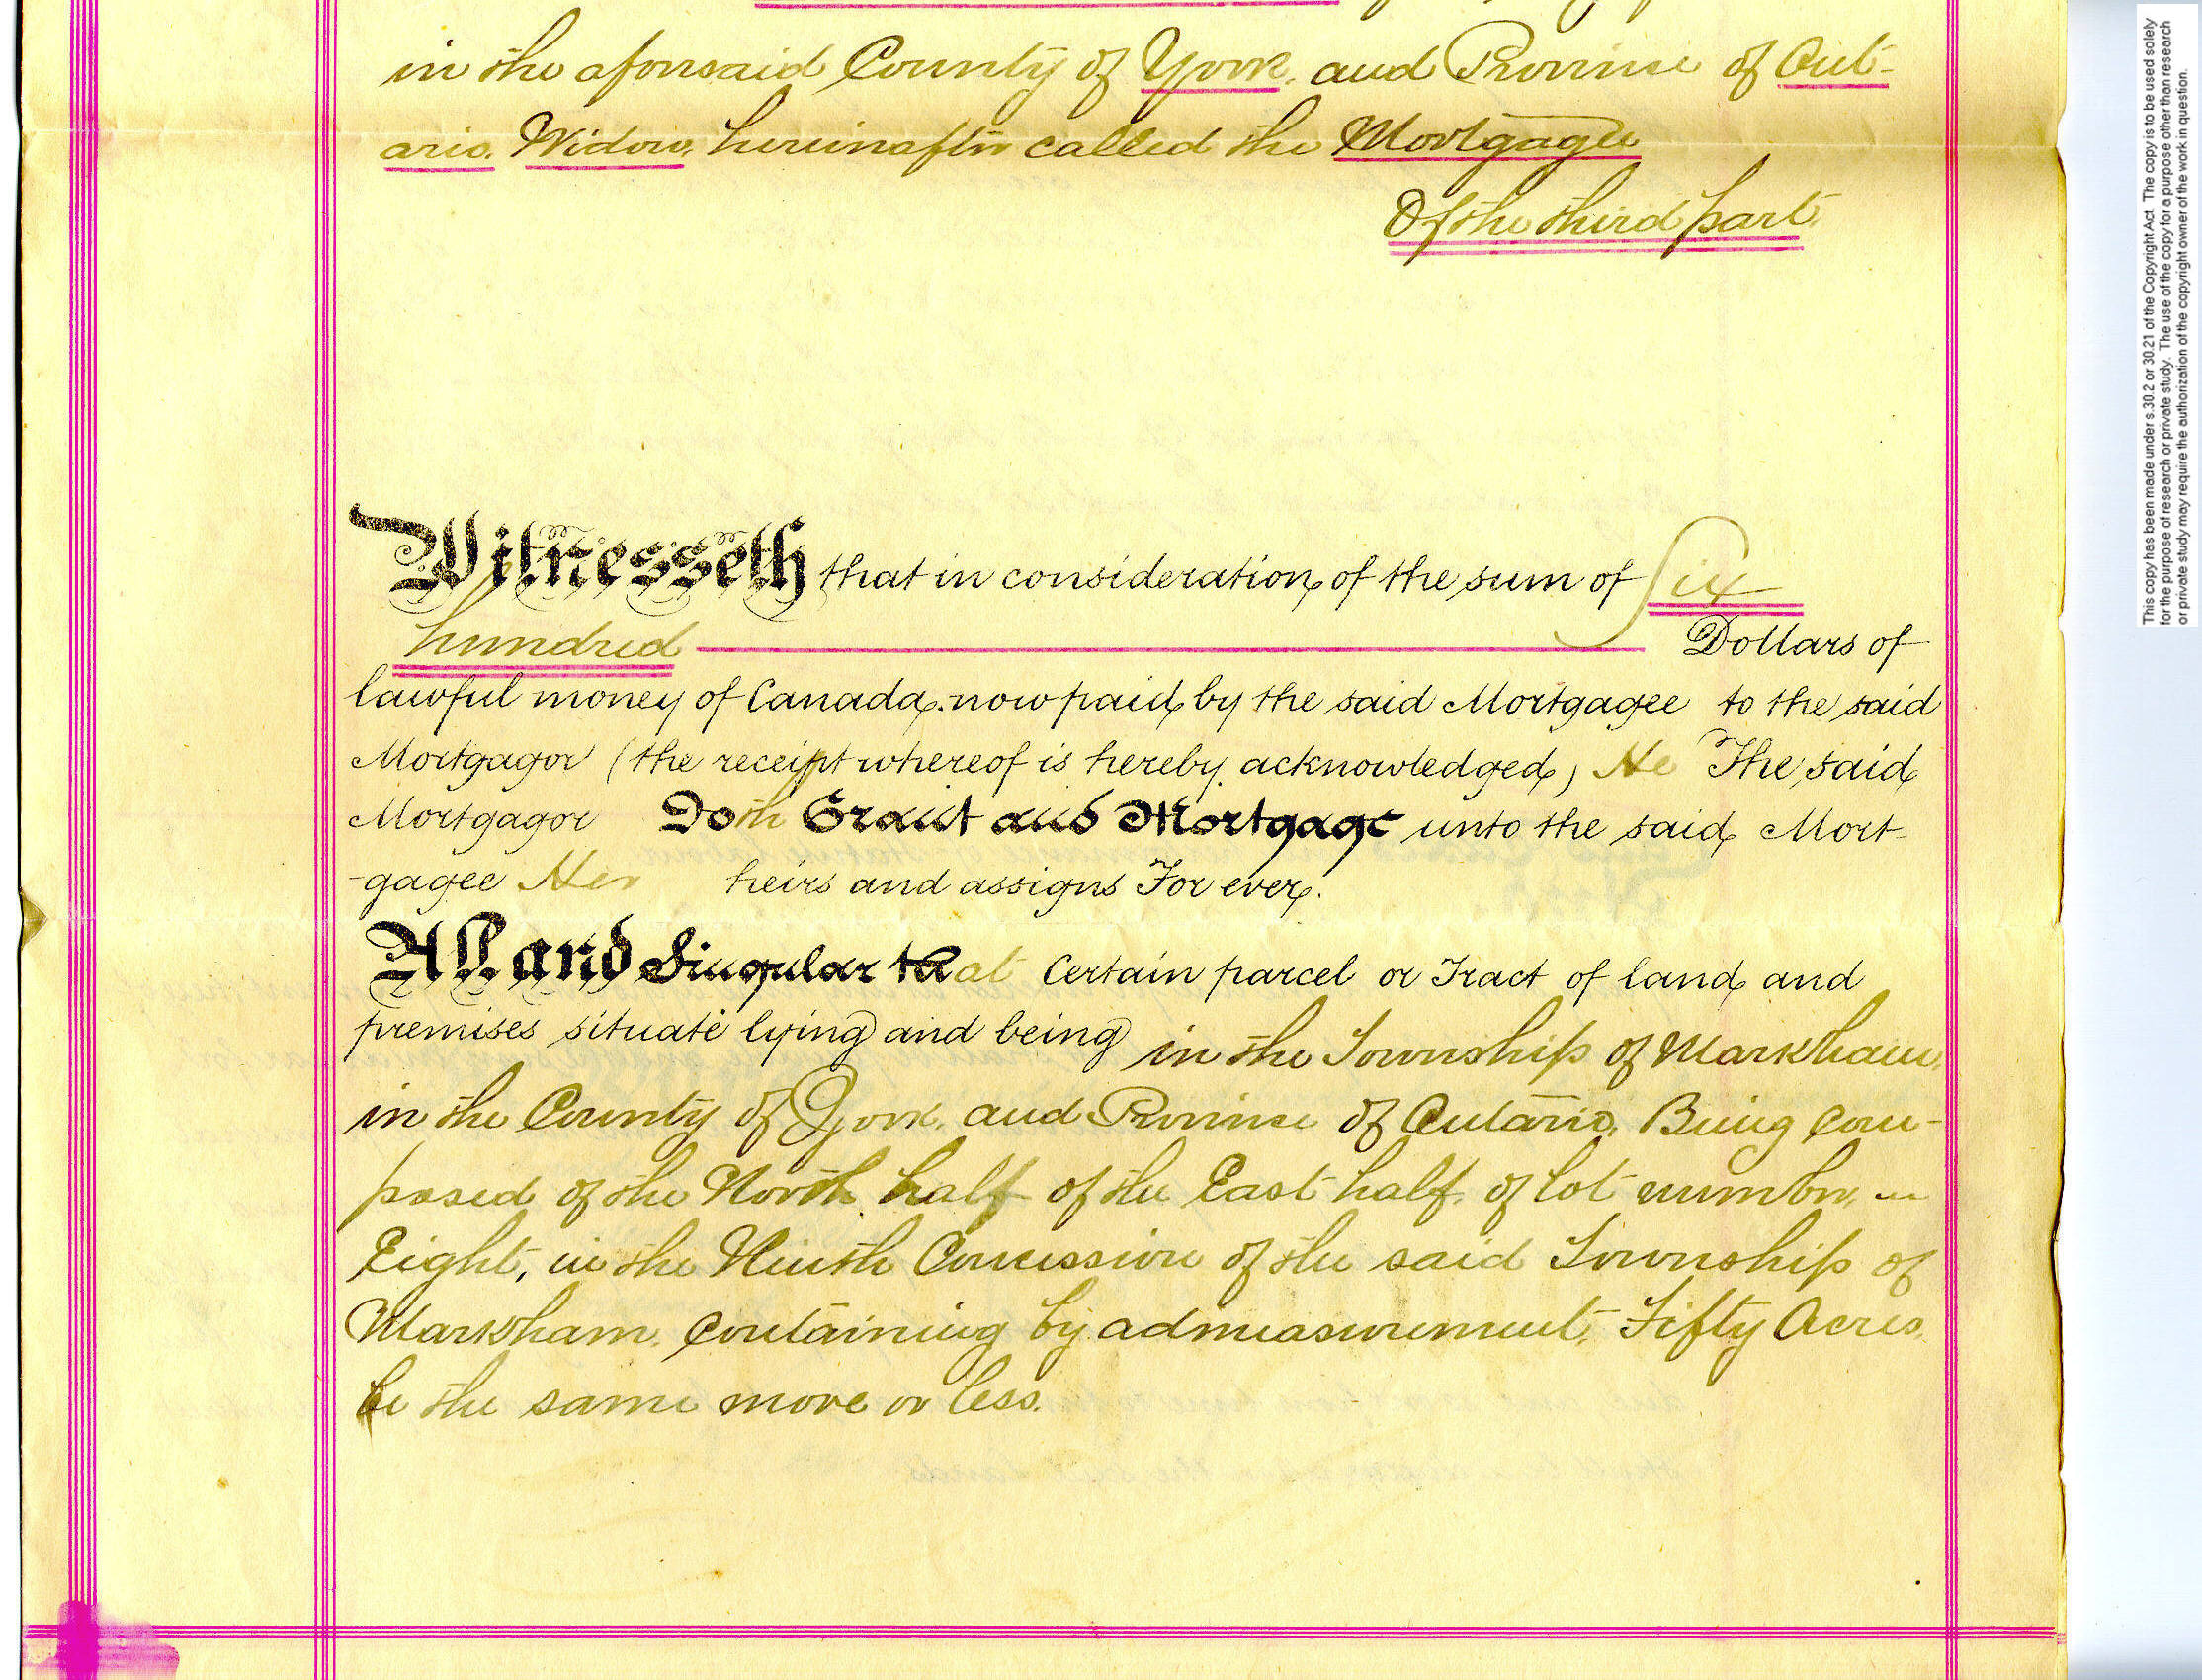 in the aforesaid County of York, and Province of Ont-
ario, Widow, hereinafter called the Mortgagee
Of the third part.
Witnesseth that in consideration of the sum of Six
hundred Dollars of
lawful money of Canada now paid by the said Mortgagee to the said
Mortgagor (the receipt whereof is hereby acknowledged) He The said
Mortgagor Doth Grant and Mortgage unto the said Mort-
-gagee Her heirs and assigns For ever.
All and Singular that Certain parcel or Tract of land and
premises situate lying and being in the Township of Markham,
in the County of York, and Province of Ontario, Being com-
posed of the North half of the East half, of lot number,
Eight, in the Ninth Concession of the said Township of
Markham, containing by admeasurement, Fifty Acres,
be the same more or less.
This copy has been made under s.30.2 or 30.21 of the Copyright Act. The copy is to be used solely
for the purpose of research or private study. The use of the copy for a purpose other than research
or private study may require the authorization of the copyright owner of the work in question.